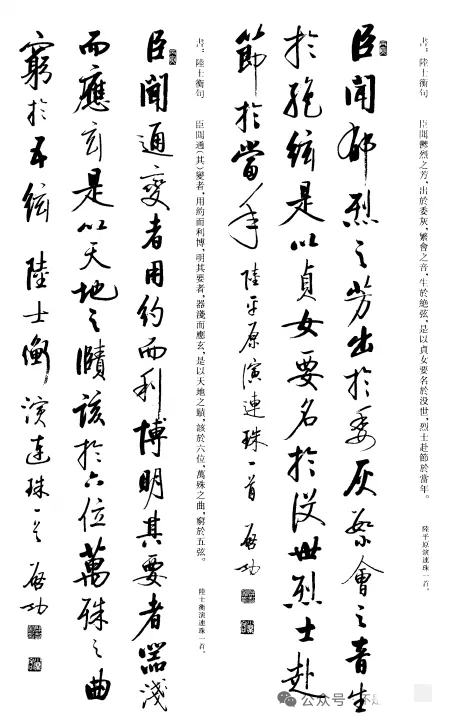 書。陸士衡句
臣聞鬱烈之芳，出於委灰，繁會之音，生於絕弦，是以貞女要名於没世，烈士赴節於當年。
陸平原演連珠一首。
臣聞郁烈之芳出於委灰繁會之音生
於絕絃是以貞女要名於没世烈士赴
節於當年 陸平原演連珠一首 啟功
書。陸士衡句
臣聞通（其）變者，用約而利博，明其要者，器淺而應玄，是以天地之賾，該於六位，萬殊之曲，窮於五弦。
陸士衡演連珠一首。
臣聞通變者用約而利博明其要者器淺
而應玄是以天地之賾該於六位萬殊之曲
窮於五絃 陸士衡演連珠一首 啟功
公众号